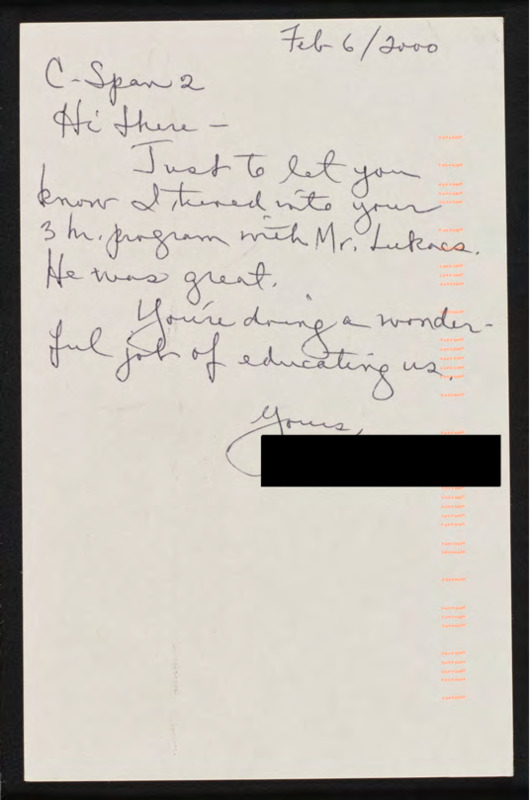 Feb 6/2000
C-Span 2
Hi there -
Just to let you
know I tuned into your
3 hr. program with Mr. Lukacs.
He was great.
You're doing a wonder-
ful job of educating us.
Yours,